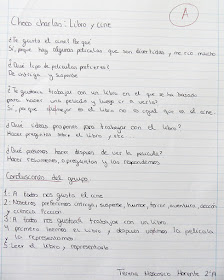 A
Choco charlas: Libro y cine
¿Te gusta el cine? Por qué
Sí, porque hay algunas películas que son divertidas y me río mucho
¿Qué tipo de películas prefieres?
De intriga y suspense
¿Te gustaría trabajar con un libro en el que se ha basado
para hacer una película y luego ir a verla?
Sí, porque el libro no es igual que es el cine
¿Qué ideas propones para trabajar con el libro?
Hacer preguntas sobre el libro y
¿Qué podemos hacer después de ver la película?
Hacer resúmenes, o preguntas y las respondemos.
Conclusión del grupo:
1: A todos nos gusta el cine
2: Nosotros preferimos intriga, suspense, humor, terror, aventura, acción
y ciencia ficción
3: A todos nos gustaría trabajar con un libro.
4: primero leemos el libro y después vemos la película
y la representamos.
5: Leer el libro y representarlo
2ºA